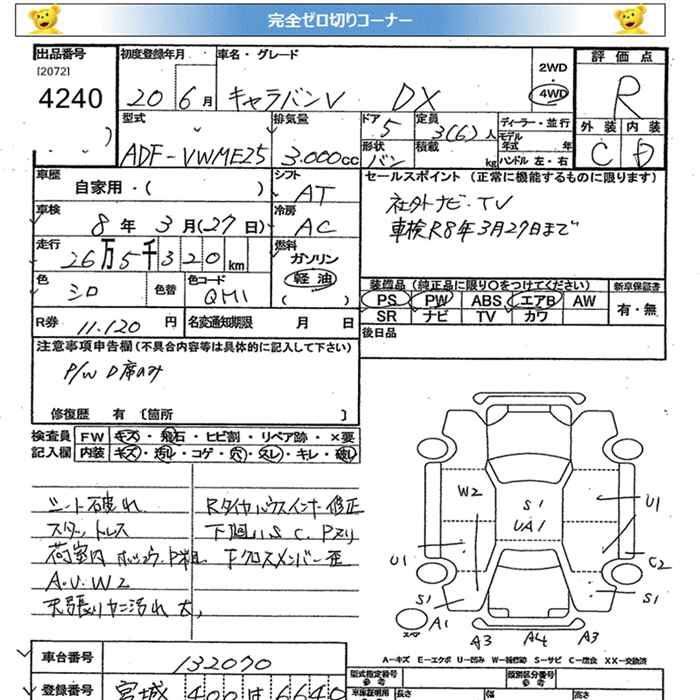 完全ゼロ切りコーナー
出品番号
[2072]
4240
初度登録年月
20 6月
車名・グレード
キャラバンV DX
2WD
・
4WD
評価点
R
外装 内装
C D
型式
ADF-VWME25
排気量
3.000cc
ドア
5
形状
バン
定員
3(6)人
積載
kg
ディーラー・並行
モデル年式 年
ハンドル 左・右
車歴
自家用・( )
シフト
AT
車検
8年 3月(27日)
冷房
AC
走行
26万5千320km
燃料
ガソリン
軽油
( )
色
シロ
色替
色コード
QM1
R券 11.120円
名変通知期限 月 日
セールスポイント (正常に機能するものに限ります)
社外ナビ・TV
車検R8年3月27日まで
装備品(純正品に限り○をつけてください)
PS PW ABS エアB AW
SR ナビ TV カワ
新車保証書
有・無
後日品
注意事項申告欄(不具合内容等は具体的に記入して下さい)
P/W D席のみ
修復歴 有 〔箇所 〕
検査員記入欄
FW キズ・飛石・ヒビ割・リペア跡・×要
内装 キズ・汚レ・コゲ・穴・スレ・キレ・破レ
シート破れ
スタットレス
荷室内
A.U.W2
天張りヤニ汚れ大
Rタイヤハウスインナー修正
下廻りS C.Pヌリ
Fクロスメンバー歪
W2
S1
UA1
U1
U1
C2
S1
S1
A1
スペア
A3 A4 A3
A-キズ E-エクボ U-凹み W-補修跡 S-サビ C-腐食 XX-交換済
車台番号
132070
型式指定番号
参考
類別区分番号
参考
登録番号
宮城 400 は 6640
車庫証明用
長さ
幅
高さ